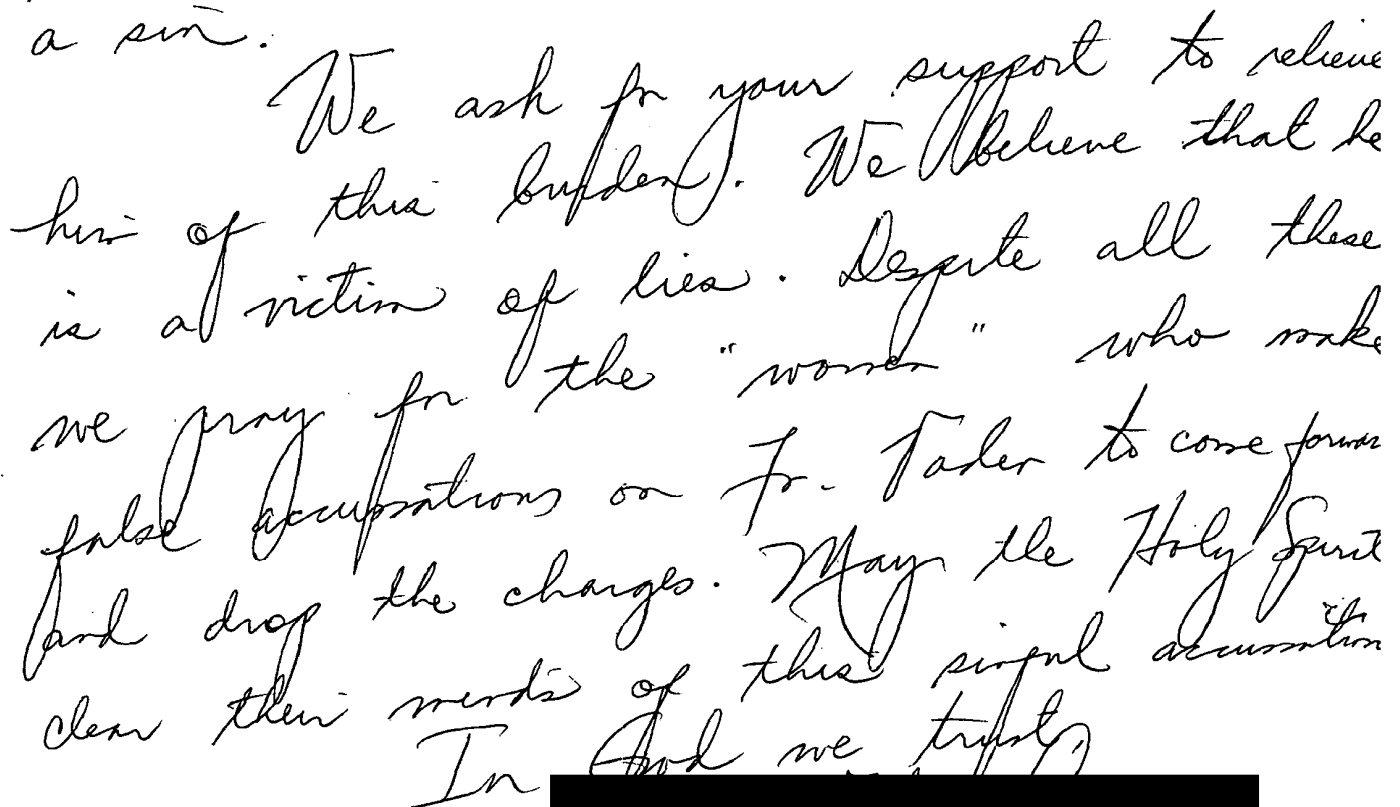 a sin.
We ask for your support to relieve
him of this burden. We believe that he
is a victim of lies. Despite all these
we pray for the "women" who make
false accusations on Fr. Tader to come forwar
and drop the charges. May the Holy Spirit
clear their minds of this sinful accusation
In God we trust,